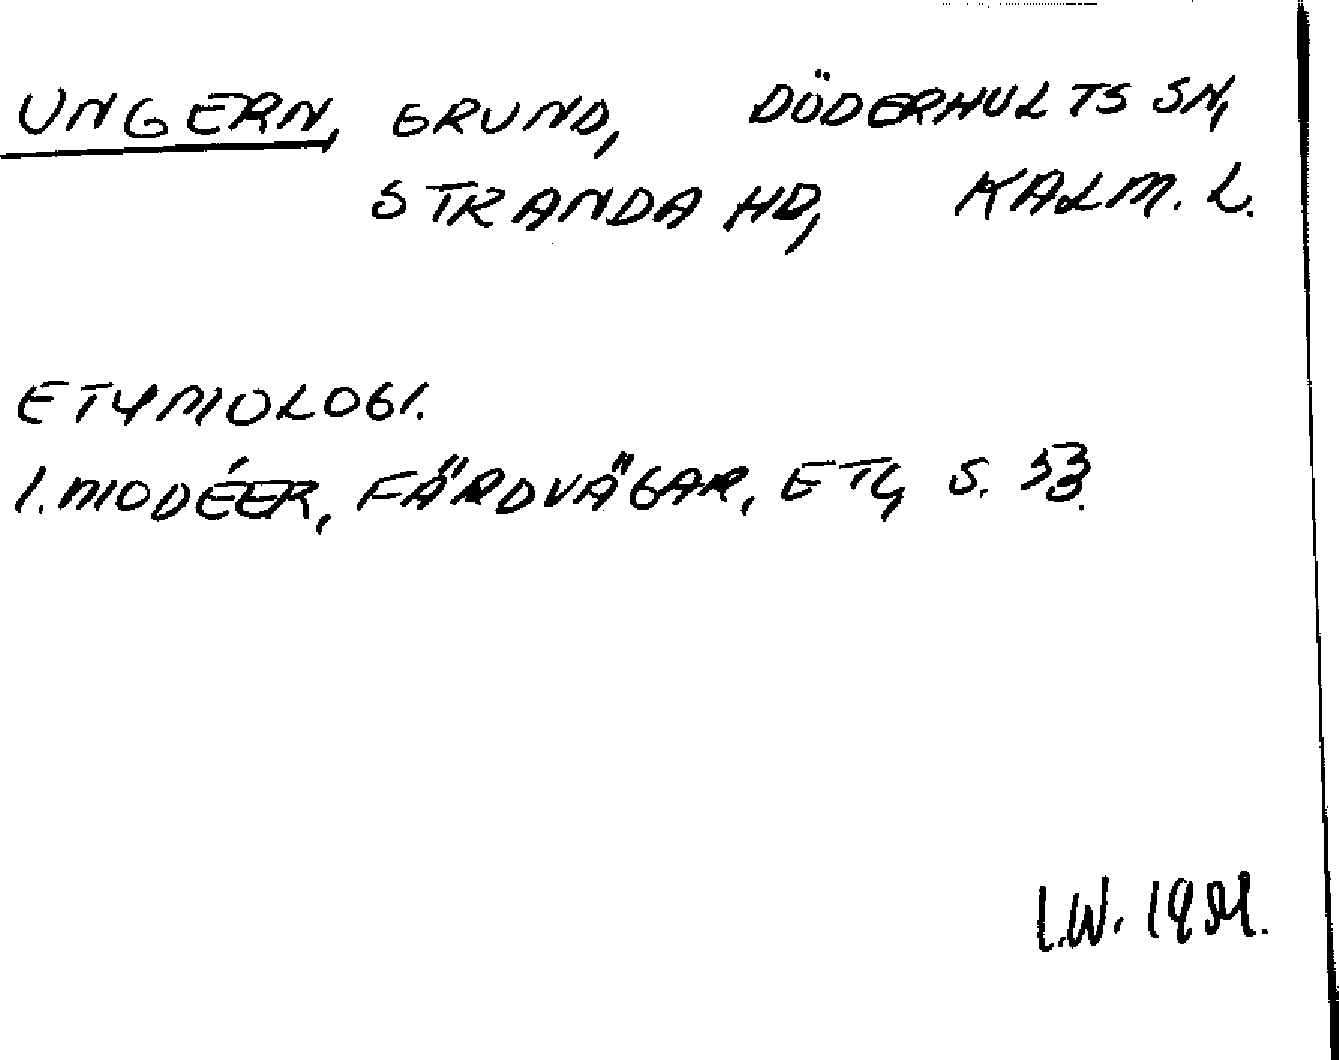 UNGERN, GRUND, DÖDERHULTS SN,
STRANDA HD, KALM. L.
ETYMOLOGI.
I. MODÉER, FÄRDVÄGAR, ETC, S. 33.
I.W.